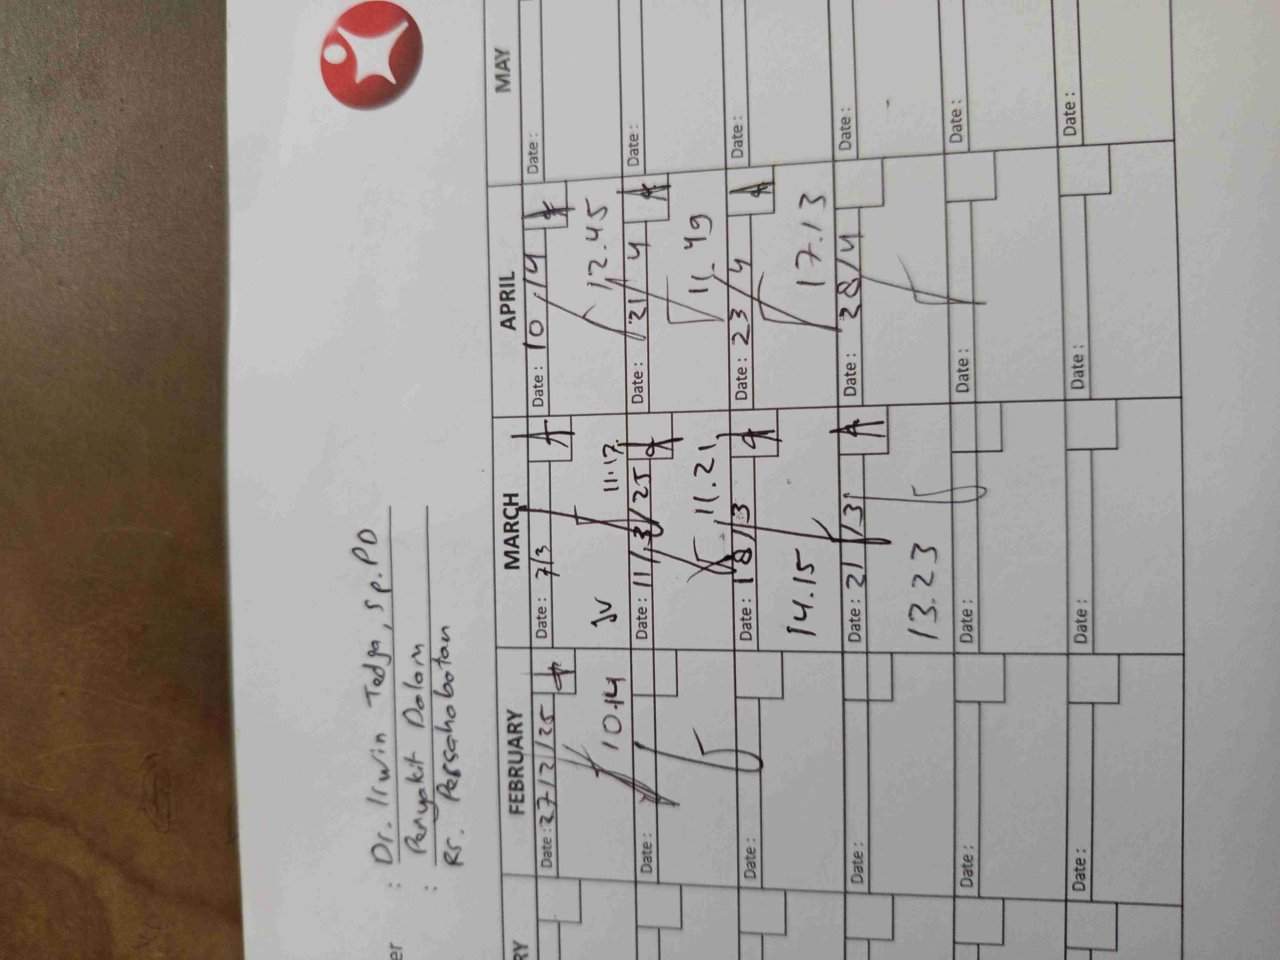 er : Dr. Irwin Tedja, Sp.PD
Penyakit Dalam
: Rs. Persahabatan
RY FEBRUARY MARCH APRIL MAY
Date: 27/2/25 Date: 7/3 Date: 10/4 Date:
10.14 JV 11.17 12.45
Date: Date: 11/3/25 Date: 21/4 Date:
11.21 11.49
Date: Date: 18/3 Date: 23/4 Date:
14.15 17.13
Date: Date: 21/3 Date: 28/4 Date:
13.23
Date: Date: Date: Date:
Date: Date: Date: